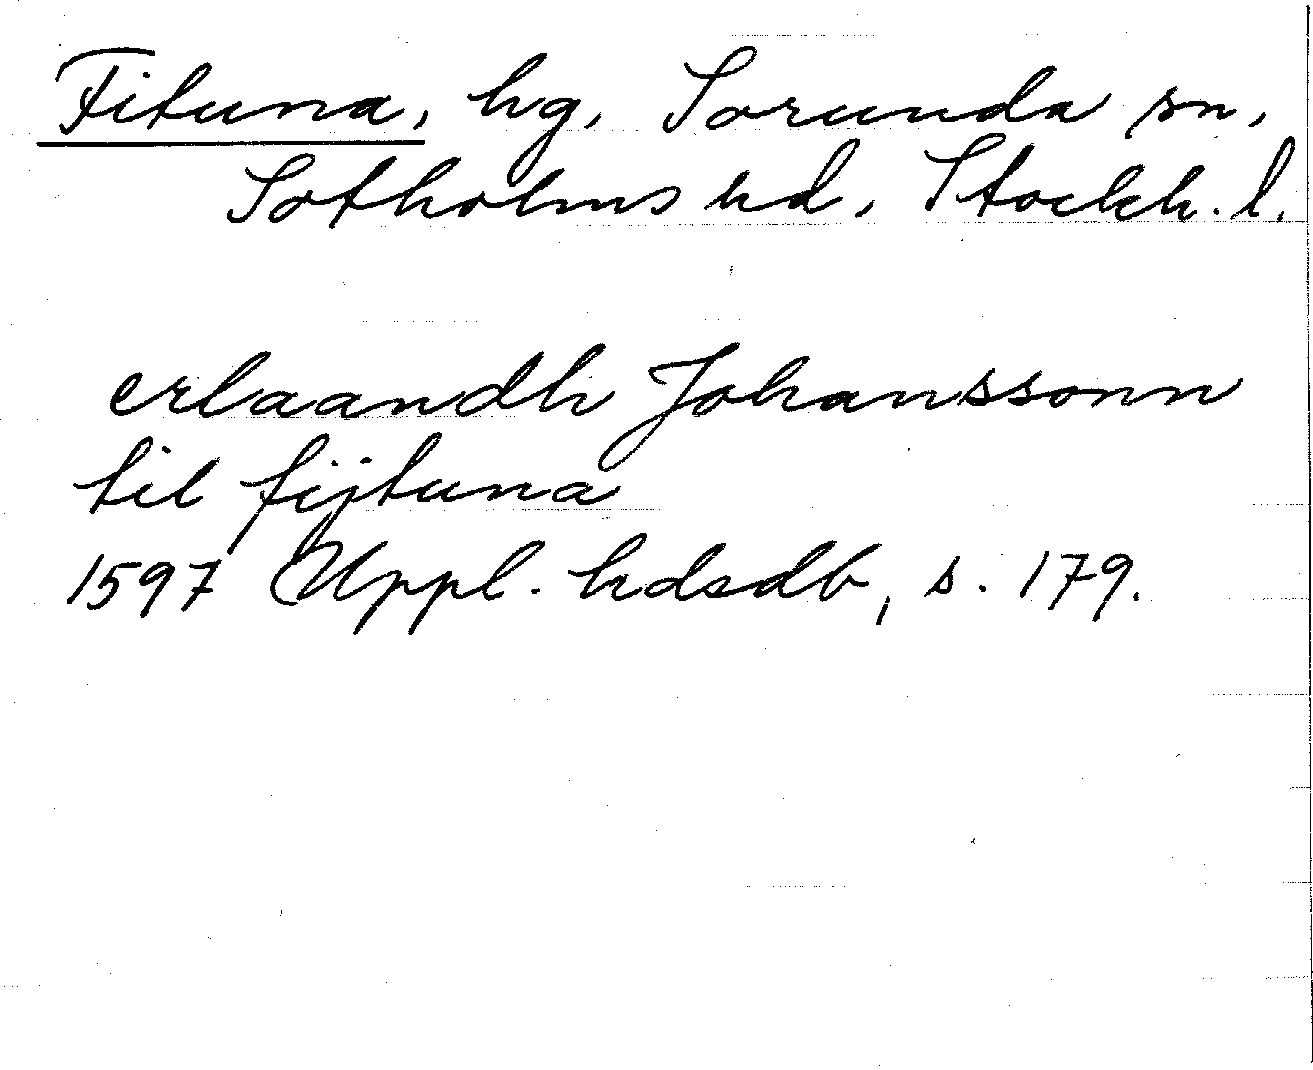 Fituna, hg, Sorunda sn,
Sotholms hd, Stockh. l.
erlaandh Johanssonn
til fijtuna
1597 Uppl. hdsdb, s. 179.